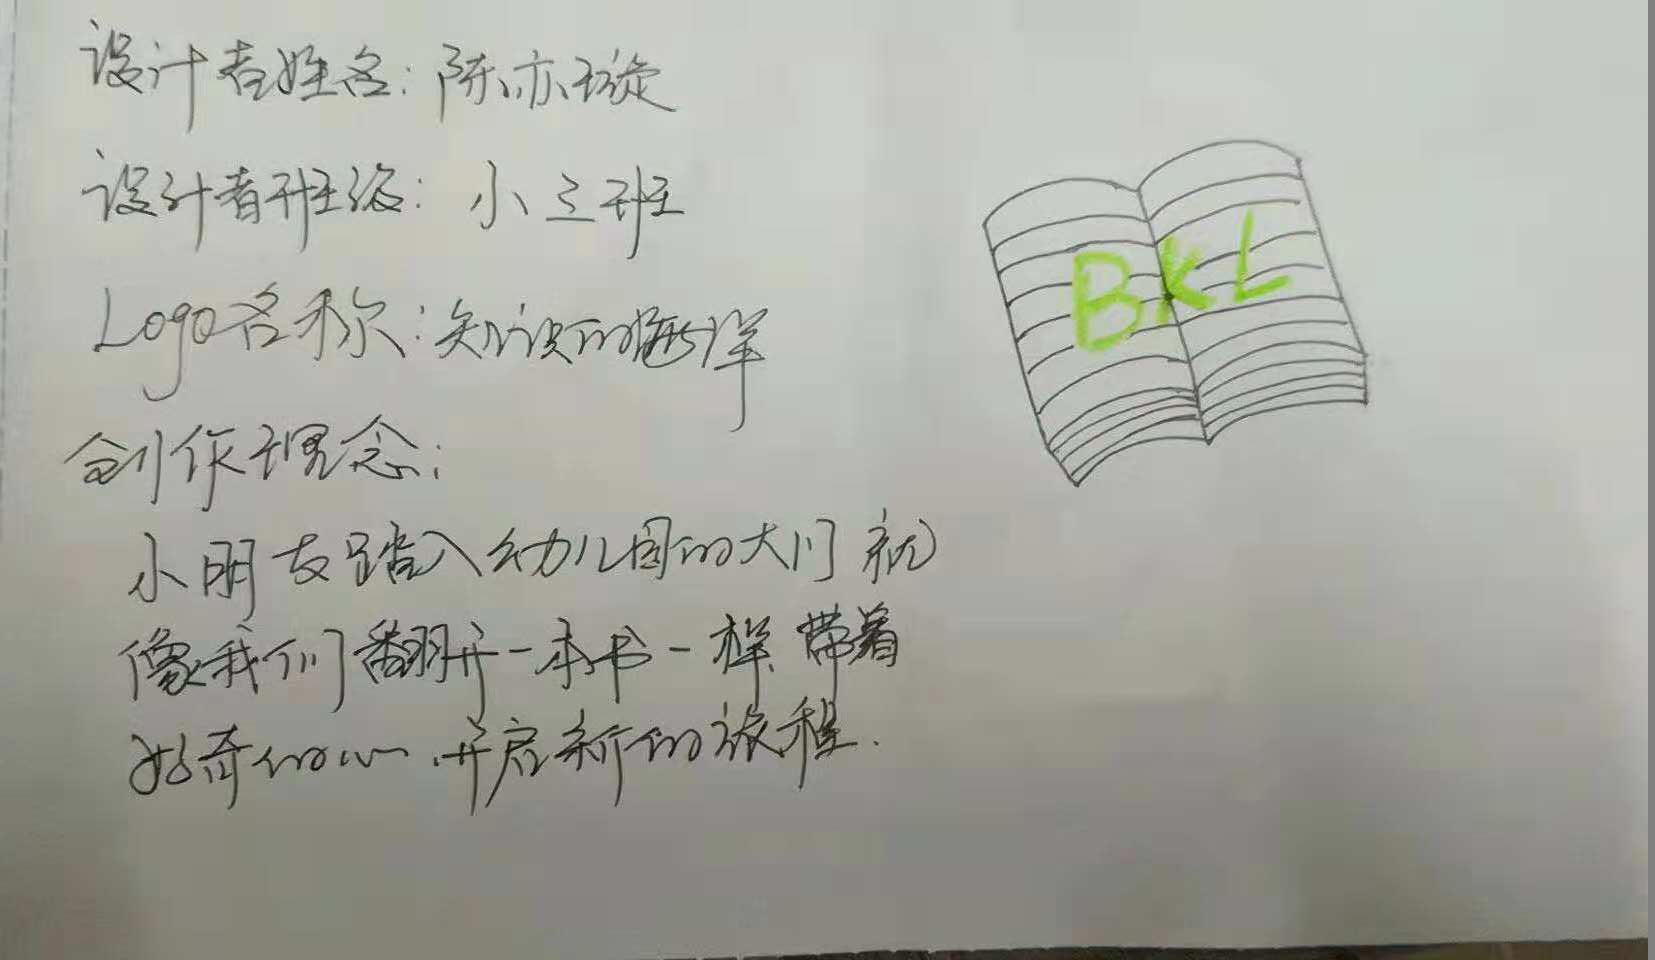 设计者姓名：陈亦璇
设计者班级：小三班
Logo名称：知识的海洋
创作理念：
小朋友踏入幼儿园的大门就
像我们翻开一本书一样带着
好奇的心.开启新的旅程.
BKL